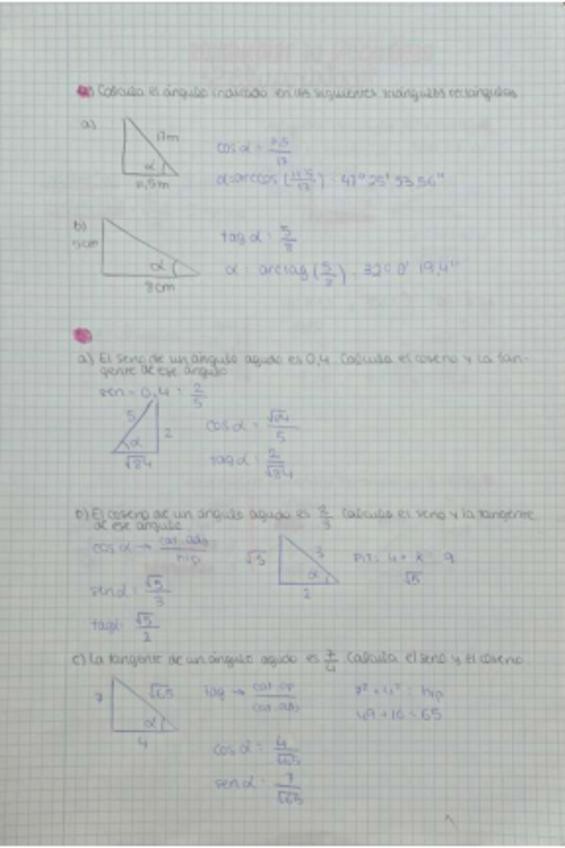 Calcula el ángulo indicado en los siguientes triángulos rectángulos
a)
17m
α
11,5m
cos α =
17
α = arccos (11,5/17) = 47° 25' 53,56"
b)
5cm
α
8cm
tag α = 5/8
α = arctag (5/8) = 32° 0' 19,4"
a) El seno de un ángulo agudo es 0,4. Calcula el coseno y la tan-
gente de ese ángulo
sen = 0,4 = 2/5
5
α
2
cos α =
5
tag α = 2
b) El coseno de un ángulo agudo es 2/3 Calcula el seno y la tangente
de ese ángulo
cos α → cat. ady / hip
√5
3
α
2
PIT: 4 + x = 9
√5
sen α = √5/3
tag α = √5/2
c) La tangente de un ángulo agudo es 7/4 Calcula el seno y el coseno
7
√65
α
4
tag → cat. op / cat. ady
7² + 4² = hip
49 + 16 = 65
cos α = 4/√65
sen α = 7/√65